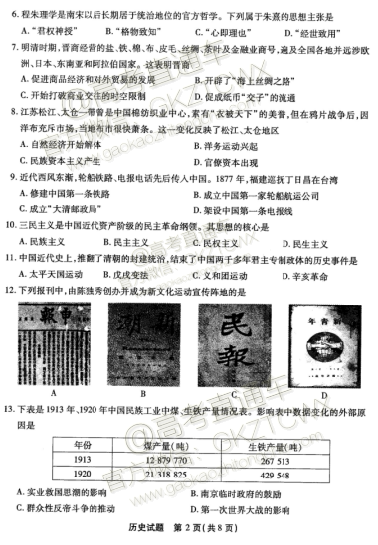 6. 程朱理学是南宋以后长期居于统治地位的官方哲学。下列属于朱熹的思想主张是
A. “君权神授” B. “格物致知” C. “心即理也” D. “经世致用”
7. 明清时期,晋商经营的盐、铁、棉、布、皮毛、丝绸、茶叶及金融业商号,遍及全国各地并远涉欧
洲、日本、东南亚和阿拉伯国家。这表明晋商
A. 促进商品经济和对外贸易的发展 B. 开辟了“海上丝绸之路”
C. 开始打破商业交往的时空限制 D. 促成纸币“交子”的流通
8. 江苏松江、太仓一带曾是中国棉纺织业中心,素有“衣被天下”的美誉,但在鸦片战争后,因
洋布充斥市场,当地布市很快萧条。这一变化反映了松江、太仓地区
A. 自然经济开始解体 B. 洋务运动兴起
C. 民族资本主义产生 D. 官僚资本出现
9. 近代西风东渐,轮船铁路、电报电话先后传入中国。1877 年,福建巡抚丁日昌在台湾
A. 修建中国第一条铁路 B. 创立中国第一家轮船航运公司
C. 成立“大清邮政局” D. 架设中国第一条电报线
10. 三民主义是中国近代资产阶级的民主革命纲领。其思想的核心是
A. 民族主义 B. 民主主义 C. 民权主义 D. 民生主义
11. 中国近代史上,推翻了清朝的封建统治,结束了中国两千多年君主专制政体的历史事件是
A. 太平天国运动 B. 戊戌变法 C. 义和团运动 D. 辛亥革命
12. 下列报刊中,由陈独秀创办并成为新文化运动宣传阵地的是
報申
民報
年青新
A B C D
13. 下表是 1913 年、1920 年中国民族工业中煤、生铁产量情况表。影响表中数据变化的外部原
因是
年份 煤产量(吨) 生铁产量(吨)
1913 12 879 770 267 513
1920 21 318 825 429 548
A. 实业救国思潮的影响 B. 南京临时政府的鼓励
C. 群众性反帝斗争的推动 D. 第一次世界大战的影响
历史试题 第 2 页(共 8 页)